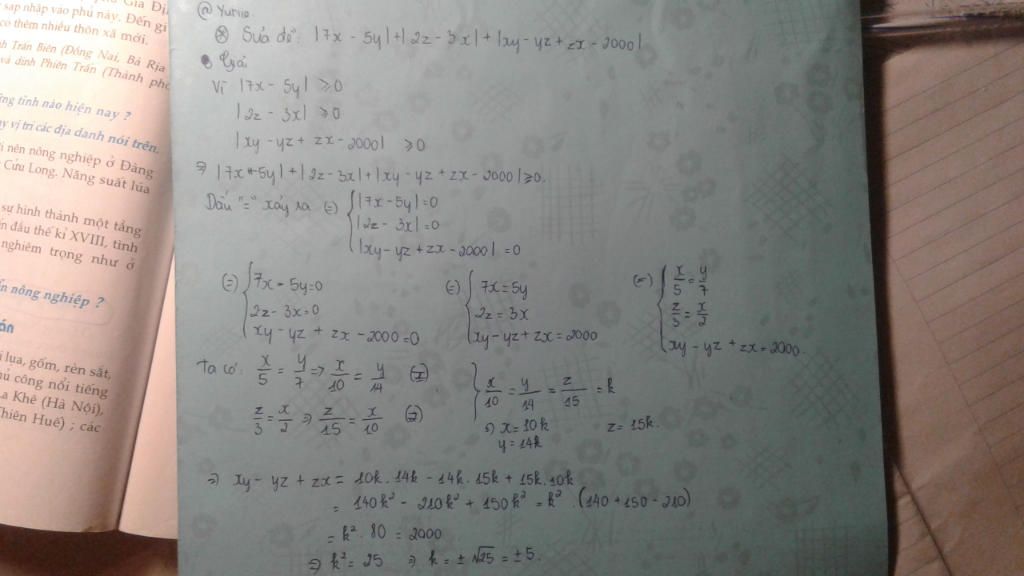 phủ Gia Đị
sáp nhập vào phủ này. Đến gi
có thêm nhiều thôn xã mới.
nh Trấn Biên (Đồng Nai, Bà Rịa
và dinh Phiên Trấn (Thành phố
tỉnh nào hiện nay ?
vị trí các địa danh nói trên.
nên nông nghiệp ở Đàng
Cửu Long. Năng suất lúa
sự hình thành một tầng
đầu thế kỉ XVIII, tình
nghiêm trọng như ở
nông nghiệp ?
lụa, gốm, rèn sắt,
thủ công nổi tiếng
La Khê (Hà Nội),
Thiên Huế) ; các
@ Yurrie.
⊗ Sửa đề: |7x - 5y| + |2z - 3x| + |xy - yz + zx - 2000|
Giải
Vì |7x - 5y| ≥ 0
|2z - 3x| ≥ 0
|xy - yz + zx - 2000| ≥ 0
⇒ |7x - 5y| + |2z - 3x| + |xy - yz + zx - 2000| ≥ 0.
Dấu "=" xảy ra (=) { |7x - 5y| = 0
|2z - 3x| = 0
|xy - yz + zx - 2000| = 0
(=) { 7x - 5y = 0
2z - 3x = 0
xy - yz + zx - 2000 = 0
(=) { 7x = 5y
2z = 3x
xy - yz + zx = 2000
(=) { x/5 = y/7
z/3 = x/2
xy - yz + zx = 2000.
Ta có: x/5 = y/7 ⇒ x/10 = y/14 (1)
z/3 = x/2 ⇒ z/15 = x/10 (2)
} x/10 = y/14 = z/15 = k
⇒ x = 10k z = 15k.
y = 14k
⇒ xy - yz + zx = 10k . 14k - 14k . 15k + 15k . 10k
= 140k² - 210k² + 150k² = k² . (140 + 150 - 210)
= k² . 80 = 2000
⇒ k² = 25 ⇒ k = ± √25 = ± 5.